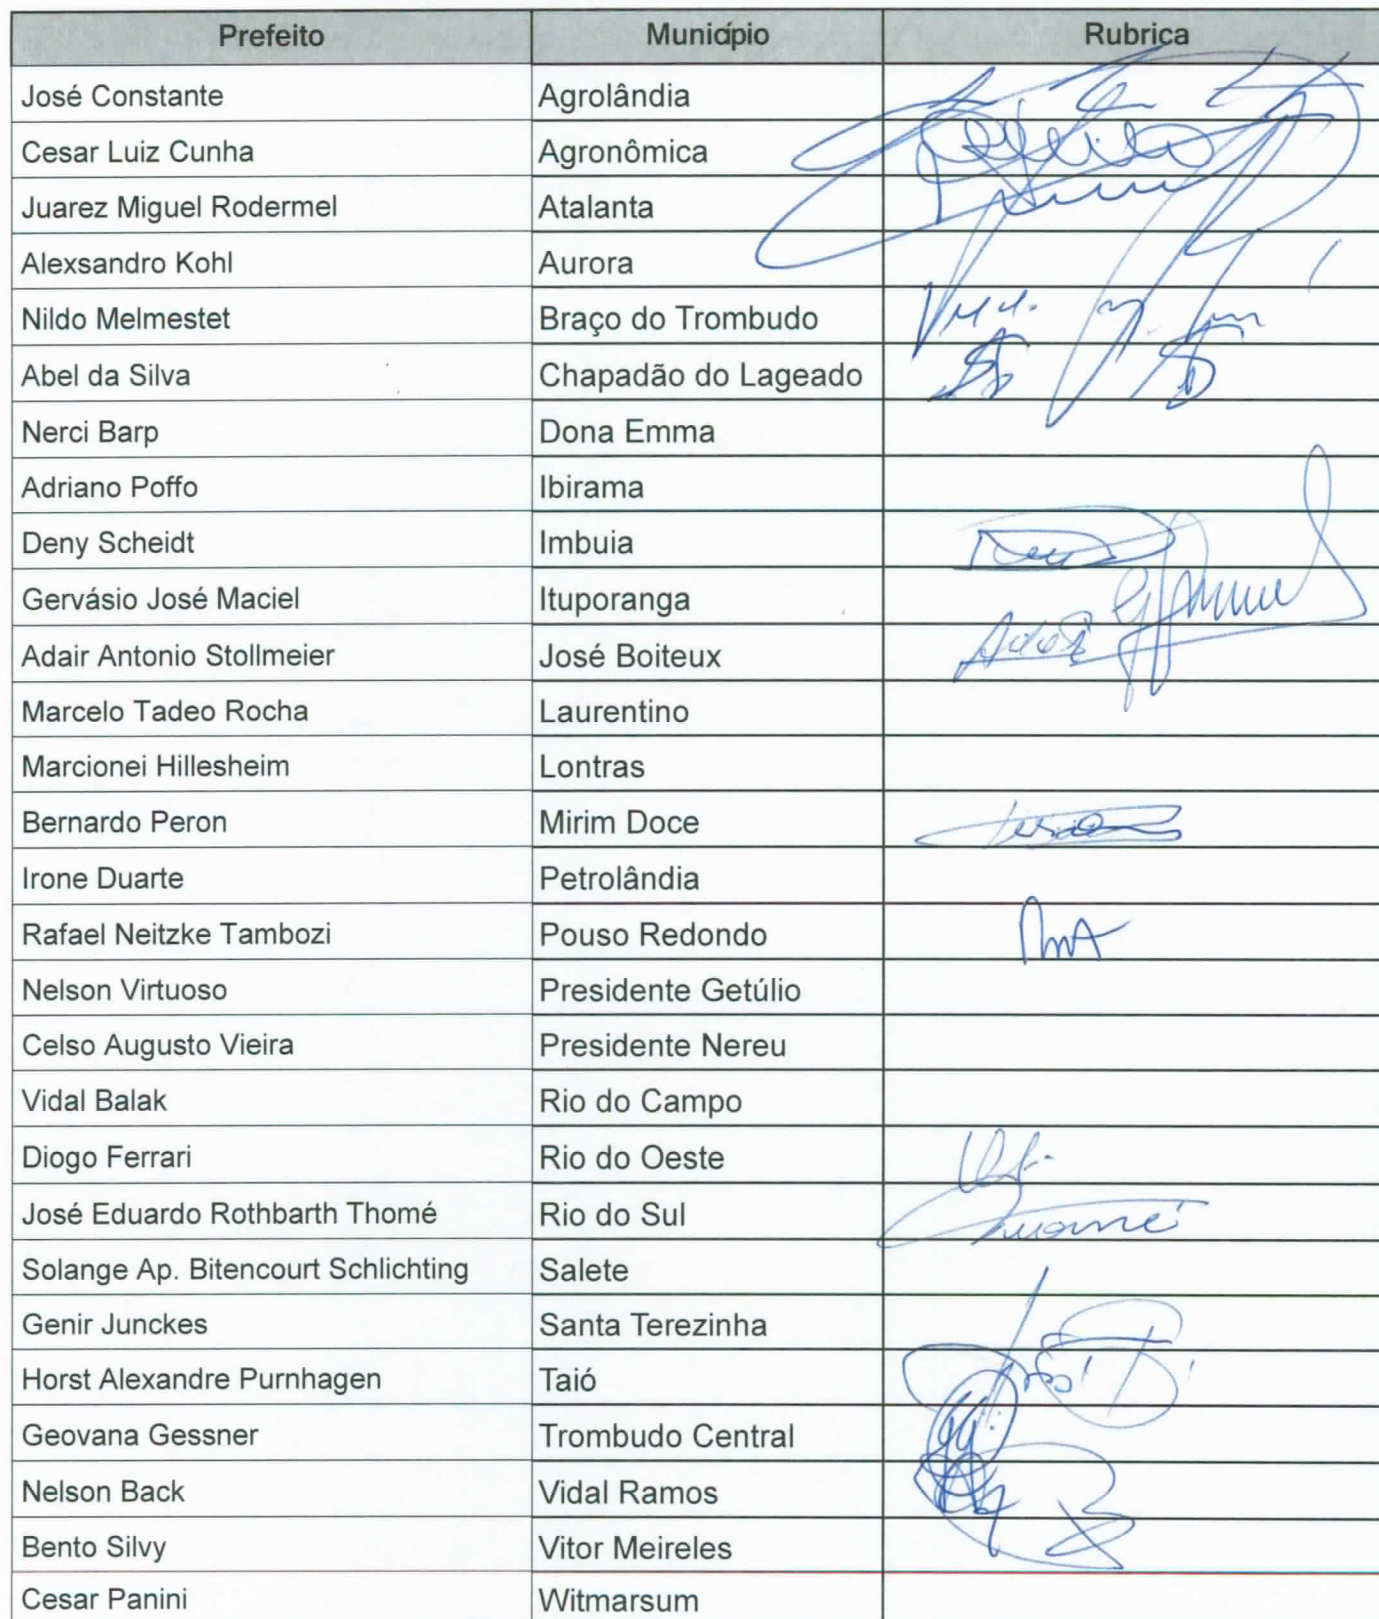 Prefeito Município Rubrica
José Constante Agrolândia
Cesar Luiz Cunha Agronômica
Juarez Miguel Rodermel Atalanta
Alexsandro Kohl Aurora
Nildo Melmestet Braço do Trombudo
Abel da Silva Chapadão do Lageado
Nerci Barp Dona Emma
Adriano Poffo Ibirama
Deny Scheidt Imbuia
Gervásio José Maciel Ituporanga
Adair Antonio Stollmeier José Boiteux
Marcelo Tadeo Rocha Laurentino
Marcionei Hillesheim Lontras
Bernardo Peron Mirim Doce
Irone Duarte Petrolândia
Rafael Neitzke Tambozi Pouso Redondo
Nelson Virtuoso Presidente Getúlio
Celso Augusto Vieira Presidente Nereu
Vidal Balak Rio do Campo
Diogo Ferrari Rio do Oeste
José Eduardo Rothbarth Thomé Rio do Sul
Solange Ap. Bitencourt Schlichting Salete
Genir Junckes Santa Terezinha
Horst Alexandre Purnhagen Taió
Geovana Gessner Trombudo Central
Nelson Back Vidal Ramos
Bento Silvy Vitor Meireles
Cesar Panini Witmarsum